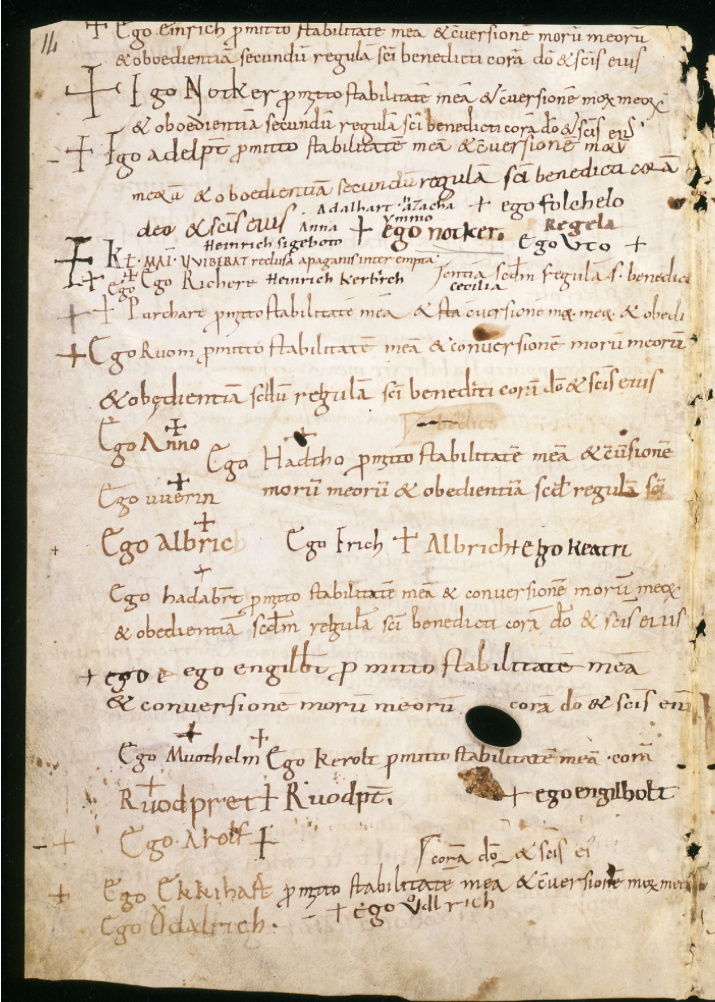 14
+ Ego einrich p̄mitto stabilitatē meā & c̄versionē morū meorū
& oboedientiā secundū regulā sc̄i benedicti corā dō & sc̄is eius
+ Ego Notker p̄mitto stabilitatē meā & c̄versionē
& oboedientiā secundū regulā sc̄i benedicti corā dō & sc̄is eius
+ Ego adelp̄t p̄mitto stabilitatē meā & c̄versionē
meorū & oboedientiam secundū regulā sc̄i benedicti corā
deo & sc̄is eius Adalhart azacha + ego folchelo
Anna ymmo + ego notker. Regela
Heinrich sigeboto Ego Vto +
K̄t. MAĪ. VVIBERAT reclusa a paganis interempta
+ ego + Ego Richere Heinrich Kerbrch sc̄dm regulā s. benedic
cecilia
+ + Purchart p̄mitto stabilitatē meā & c̄versionē mo. meo. & obedi
+ Ego Ruom p̄mitto stabilitatē meā & conversionē morū meorū
& obedientiā sc̄dū regulā sc̄i benedicti corā dō & sc̄is eius
Ego Anno +
Ego Hadtho p̄mitto stabilitatē meā & c̄v̄sionē
Ego vverin + morū meorū & obedientiā regulā sc̄i
Ego albric + Ego Erich + Albrich + ego Keatri
Ego hadabr̄t p̄mitto stabilitatē meā & conversionē morū
& obedientiā sc̄dm regulā sc̄i benedicti corā dō & sc̄is eius
+ ego e ego engilb̄t p̄ mitto stabilitatē meā
& conversionē morū meorū corā dō & sc̄is eiu
Ego Muothelm + Ego Kerolt p̄mitto stabilitatē meā corā
Ruodpret + Ruodp̄t. + ego engilbolt
+ Ego Arolf +
corā dō & sc̄is ei
+ Ego Ekkihaft p̄mitto stabilitatē meā & c̄versionē
Ego Odalrich. + ego Vodlrich